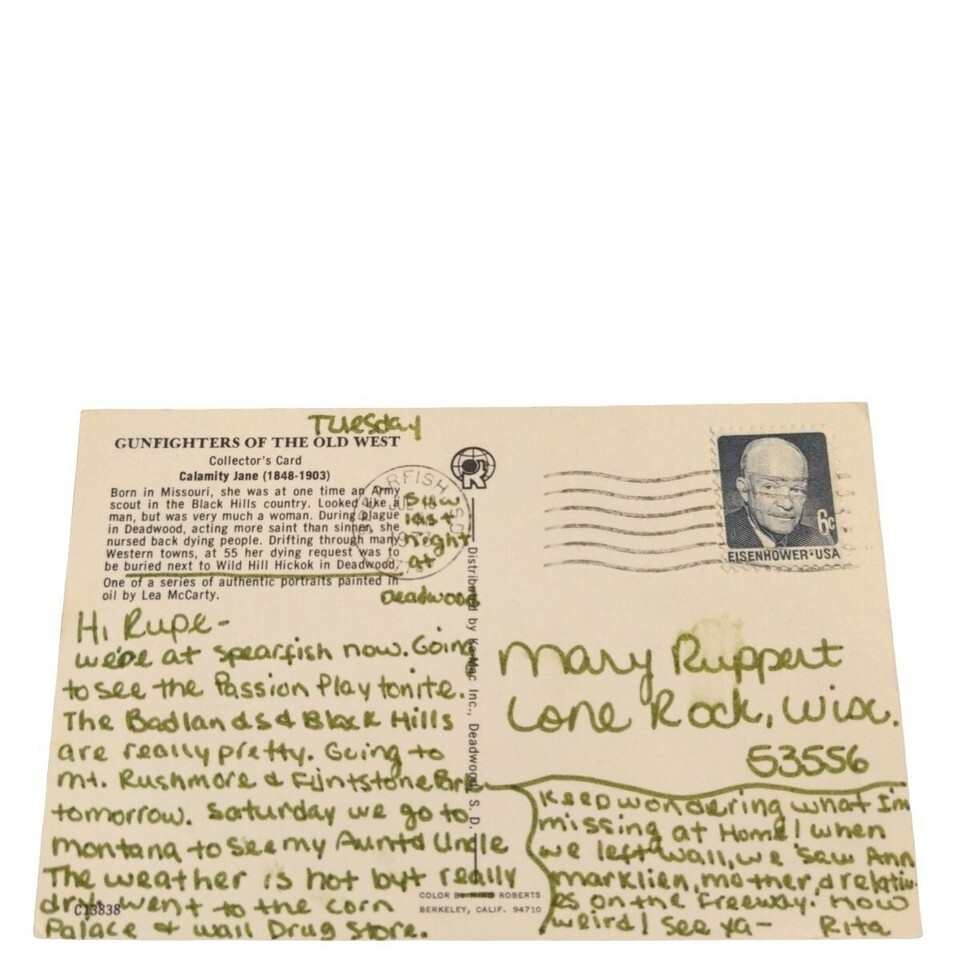 Tuesday
GUNFIGHTERS OF THE OLD WEST
Collector's Card
Calamity Jane (1848-1903)
Born in Missouri, she was at one time an Army
scout in the Black Hills country. Looked like a
man, but was very much a woman. During plague
in Deadwood, acting more saint than sinner, she
nursed back dying people. Drifting through many
Western towns, at 55 her dying request was to
be buried next to Wild Hill Hickok in Deadwood.
One of a series of authentic portraits painted in
oil by Lea McCarty.
saw
last
night
at
Deadwood
Hi Rupe-
we're at spearfish now. Going
to see the Passion Play tonite.
The Badlands & Black Hills
are really pretty. Going to
Mt. Rushmore & Flintstone Park
tomorrow. Saturday we go to
montana to see my Aunt & Uncle
The weather is hot but really
dry. went to the corn
Palace & Wall Drug Store.
C13838
Distributed by Ke-Mac Inc., Deadwood, S. D.
COLOR BY MIKE ROBERTS
BERKELEY, CALIF. 94710
SPEARFISH S.D.
EISENHOWER·USA
6c
Mary Ruppert
Lone Rock, Wisc.
53556
Keep wondering what I'm
missing at Home! when
we left Wall, we saw Ann
marklien, mother, & relativ-
es on the freeway. How
weird! See ya-
Rita